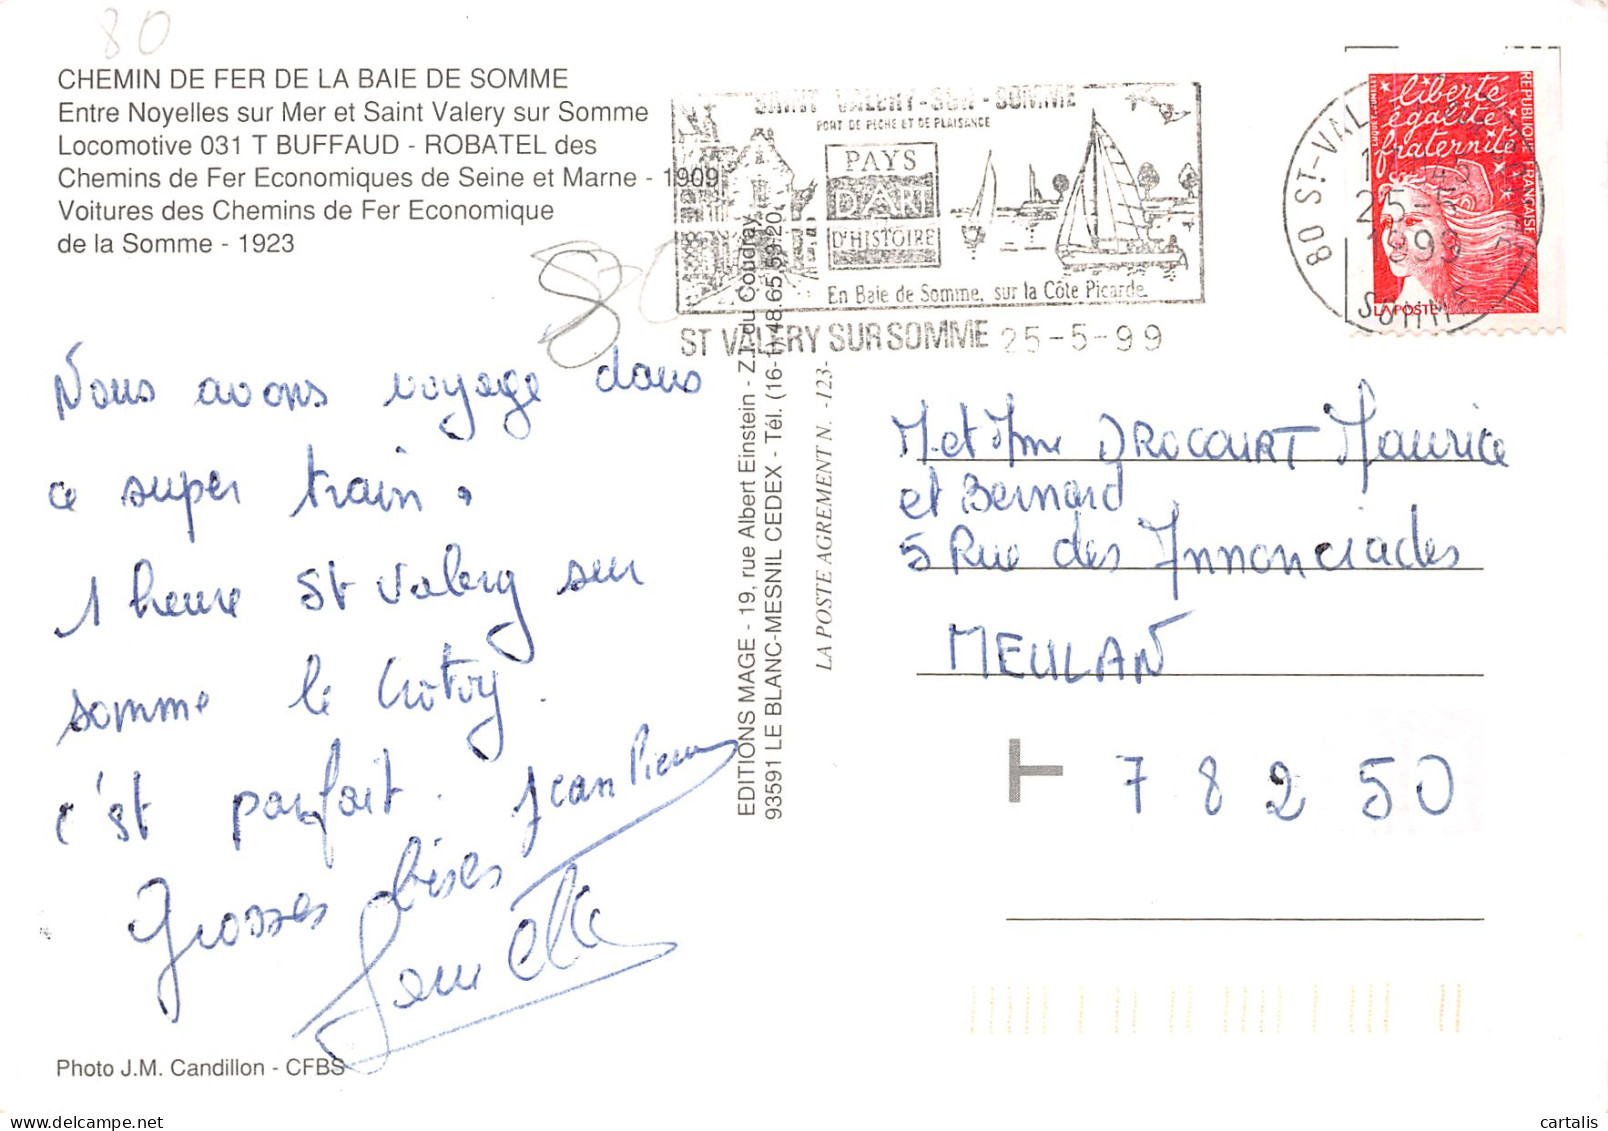 80
CHEMIN DE FER DE LA BAIE DE SOMME
Entre Noyelles sur Mer et Saint Valery sur Somme
Locomotive 031 T BUFFAUD - ROBATEL des
Chemins de Fer Economiques de Seine et Marne - 1909
Voitures des Chemins de Fer Economique
de la Somme - 1923
80
SAINT VALERY-SUR-SOMME
PORT DE PECHE ET DE PLAISANCE
PAYS
D'ART
D'HISTOIRE
En Baie de Somme, sur la Côte Picarde
ST VALERY SUR SOMME 25-5-99
80 ST-VAL
25-5
1999
SOMME
liberté
égalité
fraternité
REPUBLIQUE FRANÇAISE
LA POSTE
Nous avons voyage dans
ce super train.
1 heure St Valery sur
somme le Crotoy.
c'est parfait.
Grosses bises Jean Pierre
EDITIONS MAGE - 19, rue Albert Einstein - Z.I. du Coudray
93591 LE BLANC-MESNIL CEDEX - Tél. (16-1) 48.65.59.20.
LA POSTE AGREMENT N. -123-
M et Mme DROCOURT Maurice
et Bernard
5 Rue des Annonciades
MEULAN
T 78250
Photo J.M. Candillon - CFBS
delcampe.net
cartalis